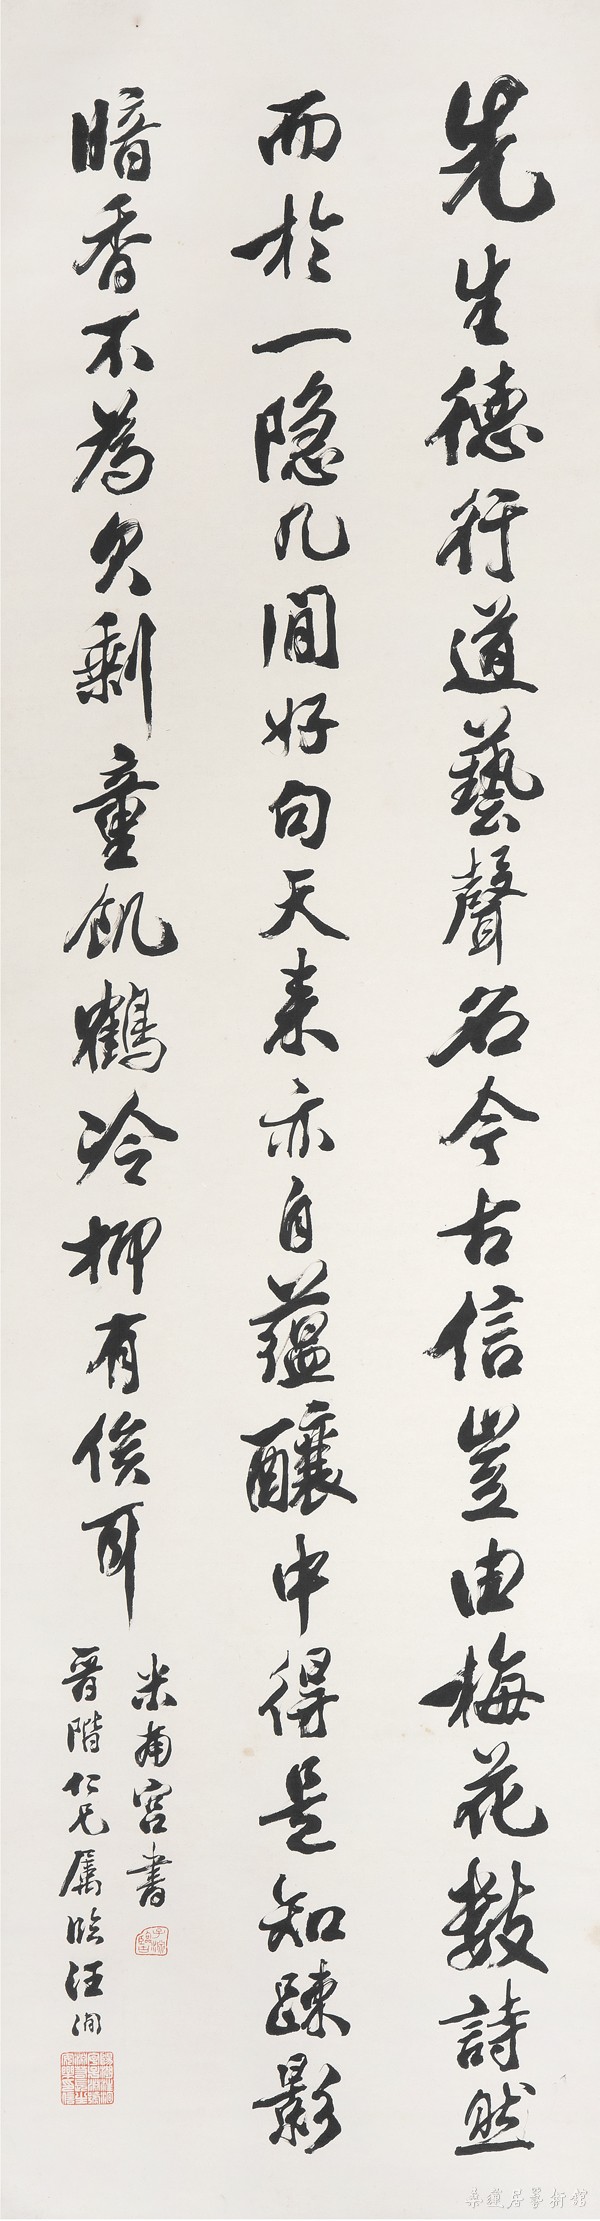 先生德行道藝聲名今古信豈由梅花數詩然
而於一隐凡間好句天来亦自蘊釀中得是知踈影
暗香不為欠剩童飢鶴冷抑有俟耳
米南宫書
晋階仁兄屬臨汪洵
桑蓮居藝術館